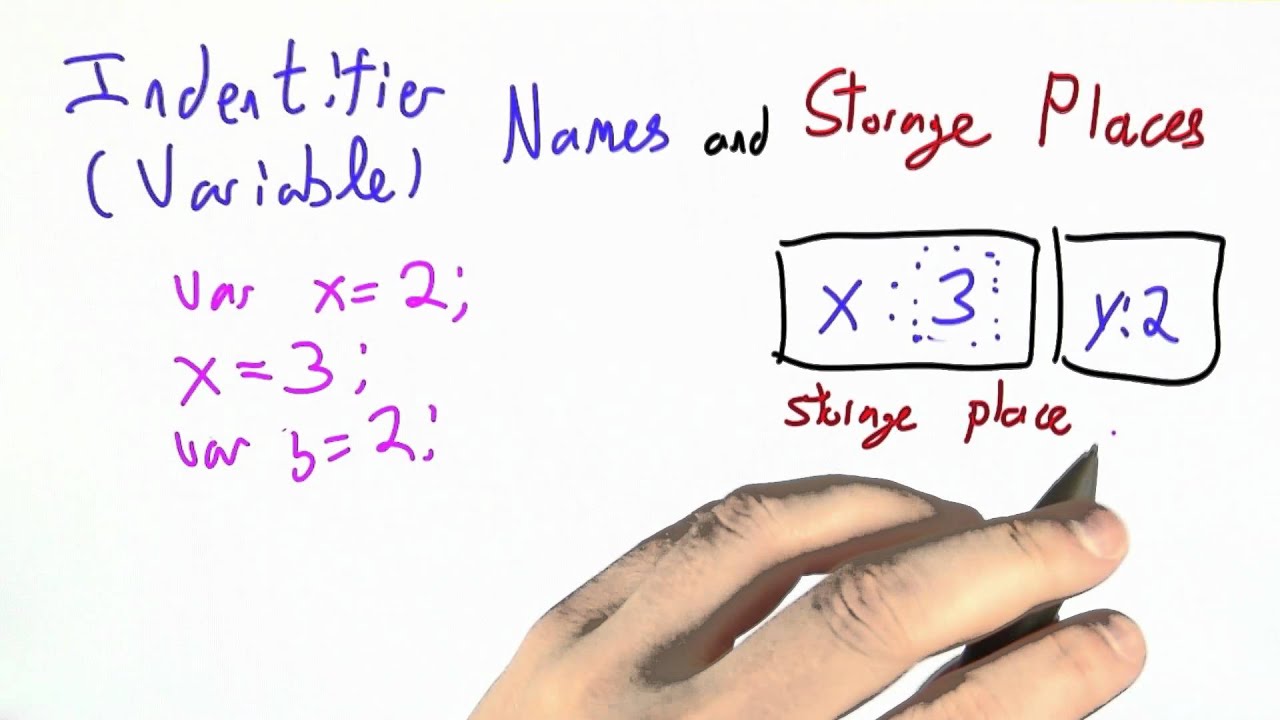 Indentifier Names and Storage Places
(Variable)
var x=2;
x=3;
var y=2;
x:3
y:2
storage place